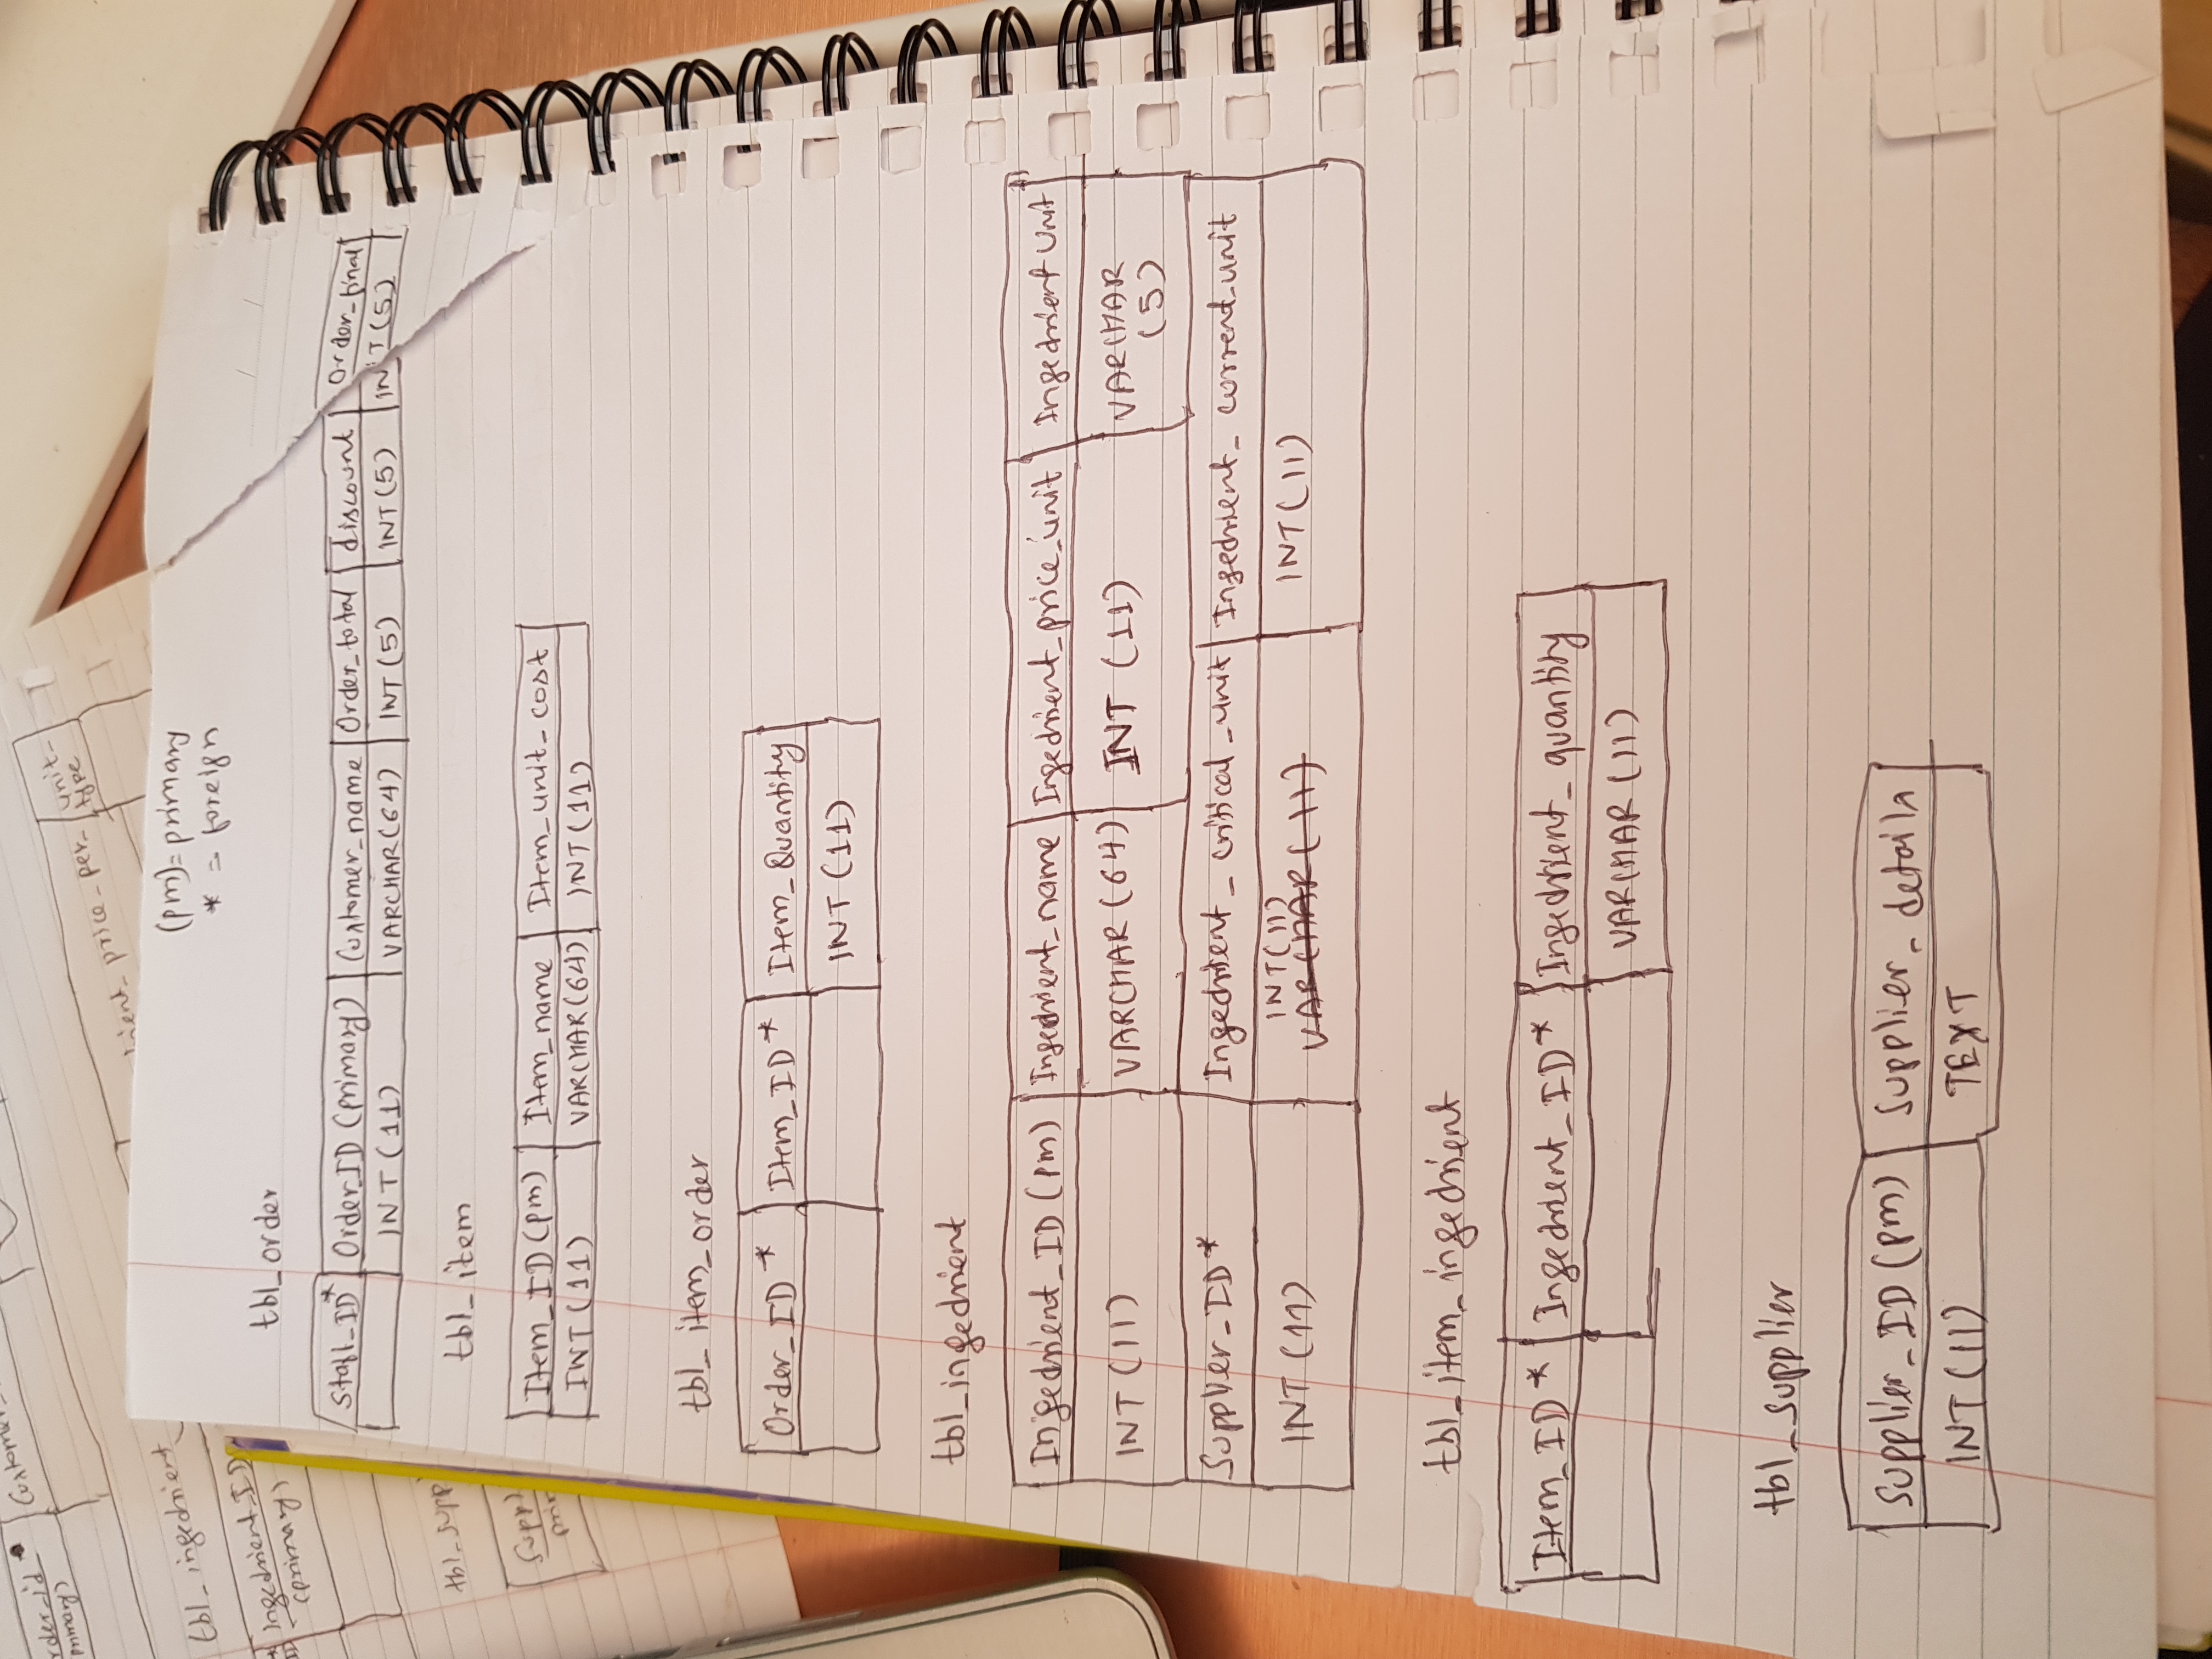 rder_id
primary)
Customer
ient_price_per_
unit_
type
tbl_ingedrient
Ingedrient_ID
(primary)
tbl_supp
Suppl
prim
(pm)= primary
* = foreign
tbl_order
Staff_ID* Order_ID (primary) Customer_name Order_total discount Order_final
INT (11) VARCHAR(64) INT (5) INT (5) INT (5)
tbl_item
Item_ID (pm) Item_name Item_unit_cost
INT (11) VARCHAR(64) INT (11)
tbl_item_order
Order_ID* Item_ID* Item_Quantity
INT (11)
tbl_ingedrient
Ingedrient_ID (pm) Ingedrient_name Ingedrient_price_unit Ingedrient unit
INT (11) VARCHAR (64) INT (11) VARCHAR
(5)
Supplier_ID* Ingedrient_critical_unit Ingedrient_current_unit
INT (11) INT(11) INT(11)
VARCHAR (11)
tbl_item_ingedrient
Item_ID* Ingedrient_ID* Ingedrient_quantity
VARCHAR (11)
tbl_supplier
Supplier_ID (pm) Supplier_details
INT (11) TEXT